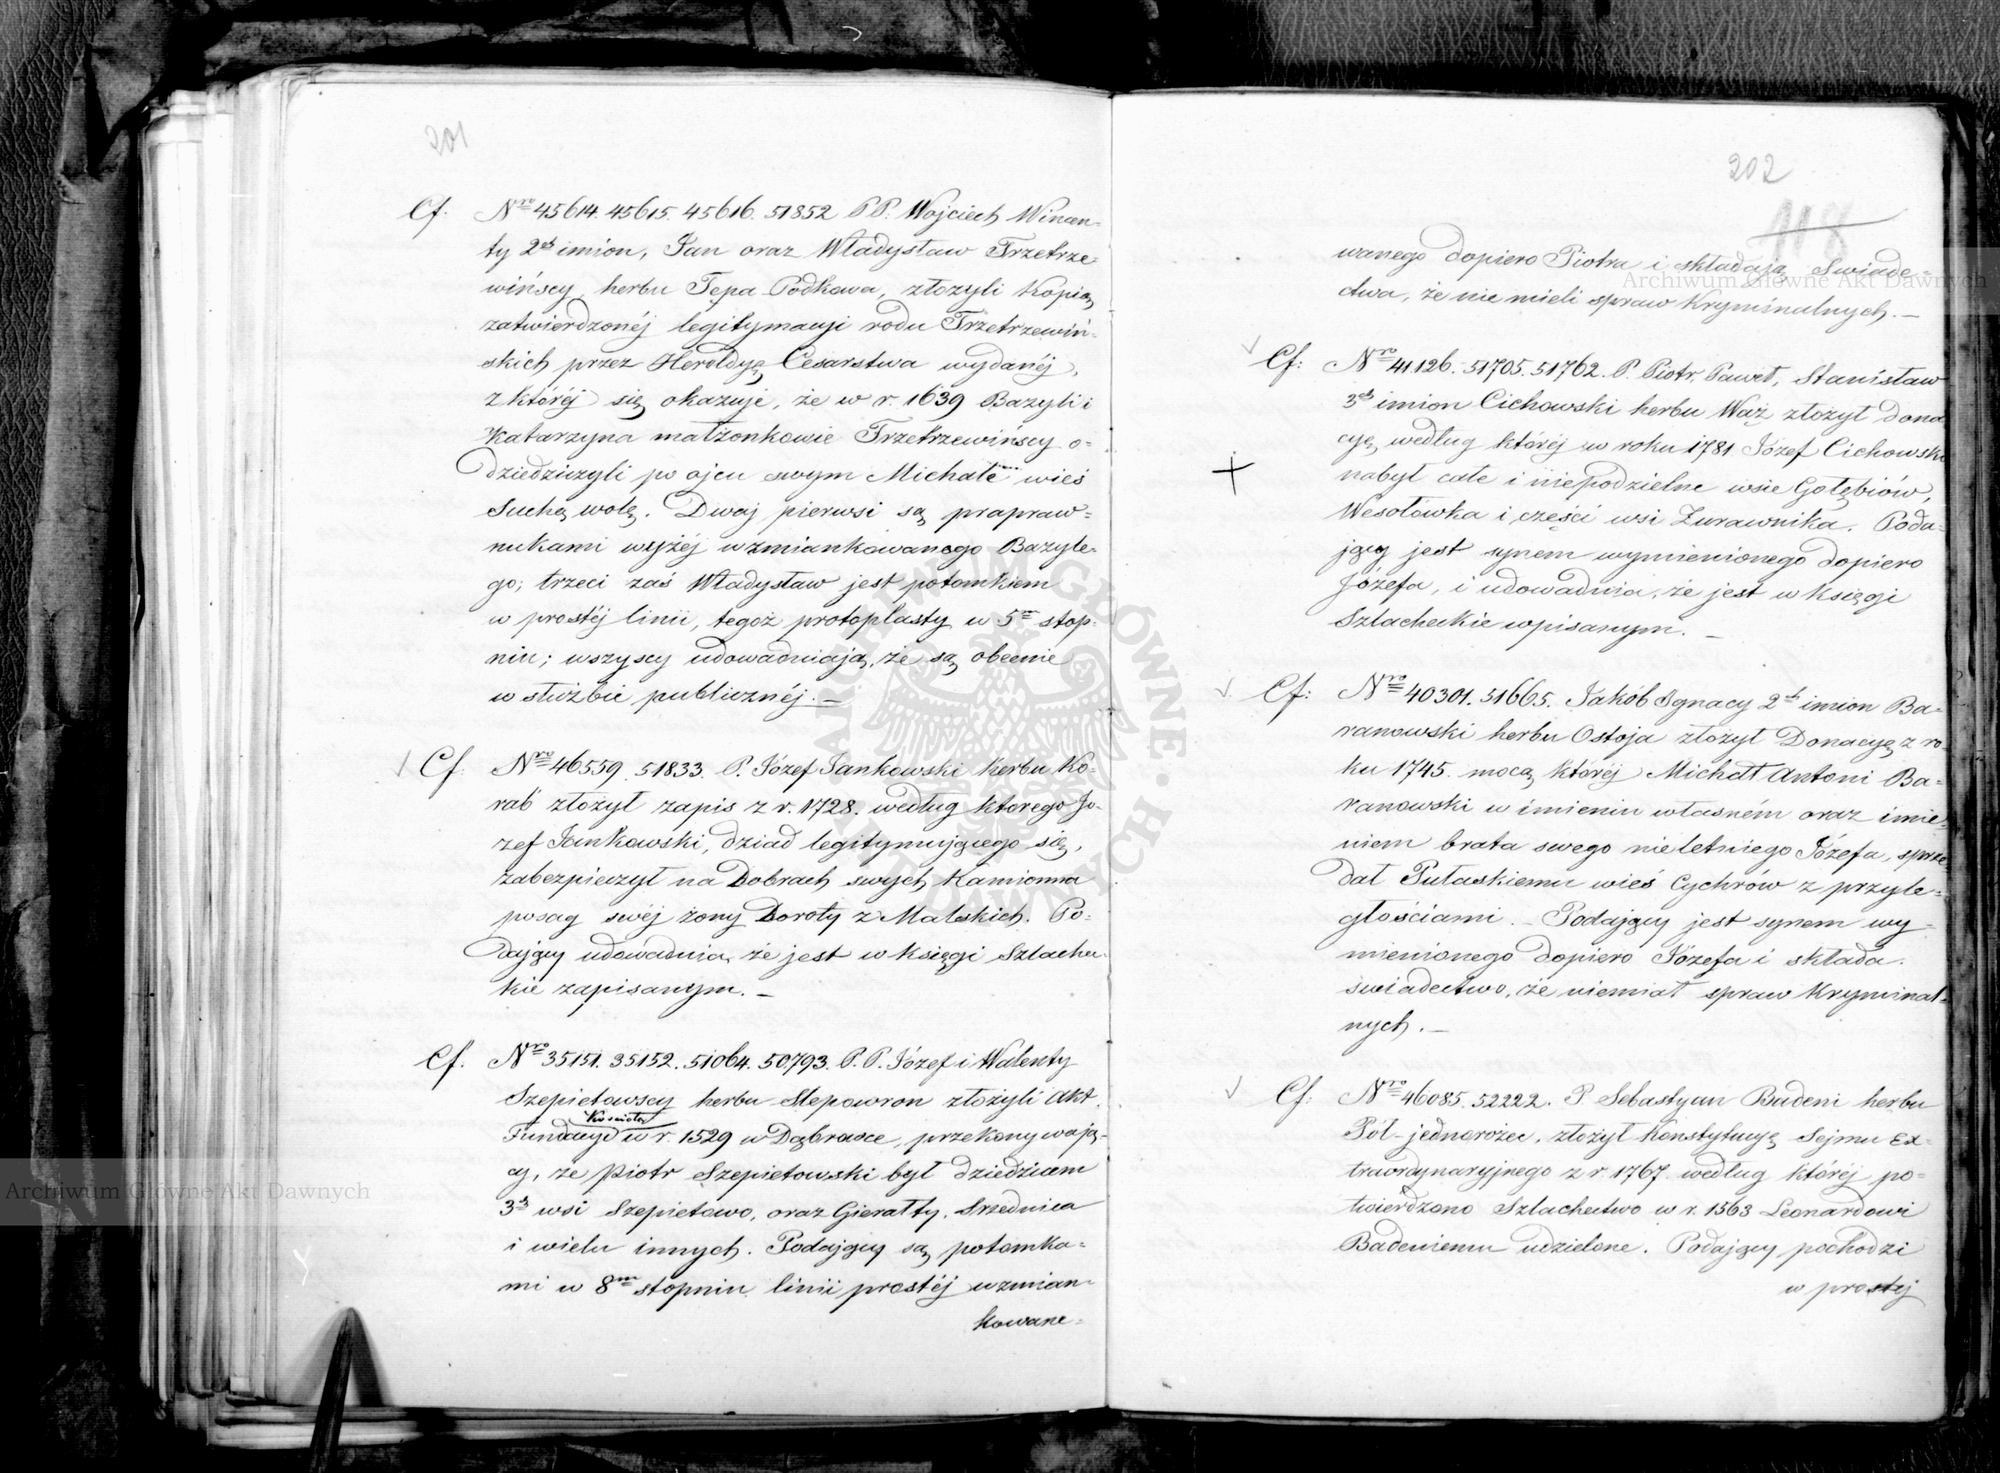 201
Cf. Nro 45614. 45615. 45616. 51852 P P. Wojciech Wincen-
ty 2ch imion, Jan oraz Władysław Trzetrze-
wińscy, herbu Tępa Podkowa, złożyli Kopią
zatwierdzonéj legitymacyi rodu Trzetrzewiń-
skich przez Heroldyę Cesarstwa wydanéj,
z któréj się okazuje, że w r. 1639 Bazyli i
Katarzyna małżonkowie Trzetrzewińscy o-
dziedziczyli po ojcu swym Michale wieś
Suchą wolę. Dwaj pierwsi są lprapraw-
nukami wyżéj wzmiankowanego Bazyle-
go; trzeci zaś Władysław jest potomkiem
w prostéj linii, tegoż protoplasty w 5m stop-
niu; wszyscy udowadniają, że są obecnie
w służbie publicznéj. —
Cf. Nro 46559. 51833. P. Józef Jankowski herbu Ko-
rab złożył zapis z r. 1728. według ktorego Jó-
zef Jankowski, dziad legitymującego się,
zabezpieczył na Dobrach swych Kamionna
posag swéj żony Doroty z Malskich. Po-
dający udowadnia, że jest w księgi Szlachec-
kie zapisanym. —
Cf. Nro 35151. 35152. 51064. 50793. P. P. Józef i Walenty
Szepietowscy herbu Slepowron złożyli akt
Kościoła
Fundacyi w r. 1529 w Dąbrowce, przekonywają-
cy, że Piotr Szepietowski był dziedzicem
3ch wsi Szepietowo, oraz Gierałty, Srednica
i wielu innych. Podający są potomka-
mi w 8m stopniu linii prostéj wzmian-
kowane-
202
118
wanego dopiero Piotra i składają Swiade-
ctwa, że nie mieli spraw Kryminalnych. —
Cf: Nro 41126. 51705. 51762. P. Piotr, Paweł, Stanisław
3ch imion Cichowski herbu Wąż złożył dona
cyę według któréj w roku 1781 Józef Cichowski
nabył całe i niepodzielne wsie Gołębiów,
Wesołówka i części wsi Zurawnika. Poda-
jący jest synem wymienionego dopiero
Józefa, i udowadnia, że jest w księgi
Szlacheckie wpisanym. —
Cf: Nro 40301. 51665. Jakób Ignacy 2ch imion Ba-
ranowski herbu Ostoja złożył Donacyę z ro-
ku 1745. mocą któréj Michał Antoni Ba-
ranowski w imieniu własném oraz imie-
niem brata swego nieletniego Józefa, sprze
dał Pułaskiemu wieś Cychrów z przyle-
głościami. — Podający jest synem wy-
mienionego dopiero Józefa i składa
świadectwo, że niemiał spraw Kryminal-
nych. —
Cf: Nro 46085. 52222. P Sebastyan Badeni herbu
Pół-jednorożec, złożył Konstytucyę Sejmu Ex-
traordynaryjnego z r. 1767. według któréj po-
twierdzono Szlachectwo w r. 1563 Leonardowi
Badeniemu udzielone. Podający pochodzi
w prostej
Archiwum Główne Akt Dawnych
Archiwum Główne Akt Dawnych
ARCHIWUM GŁÓWNE AKT DAWNYCH